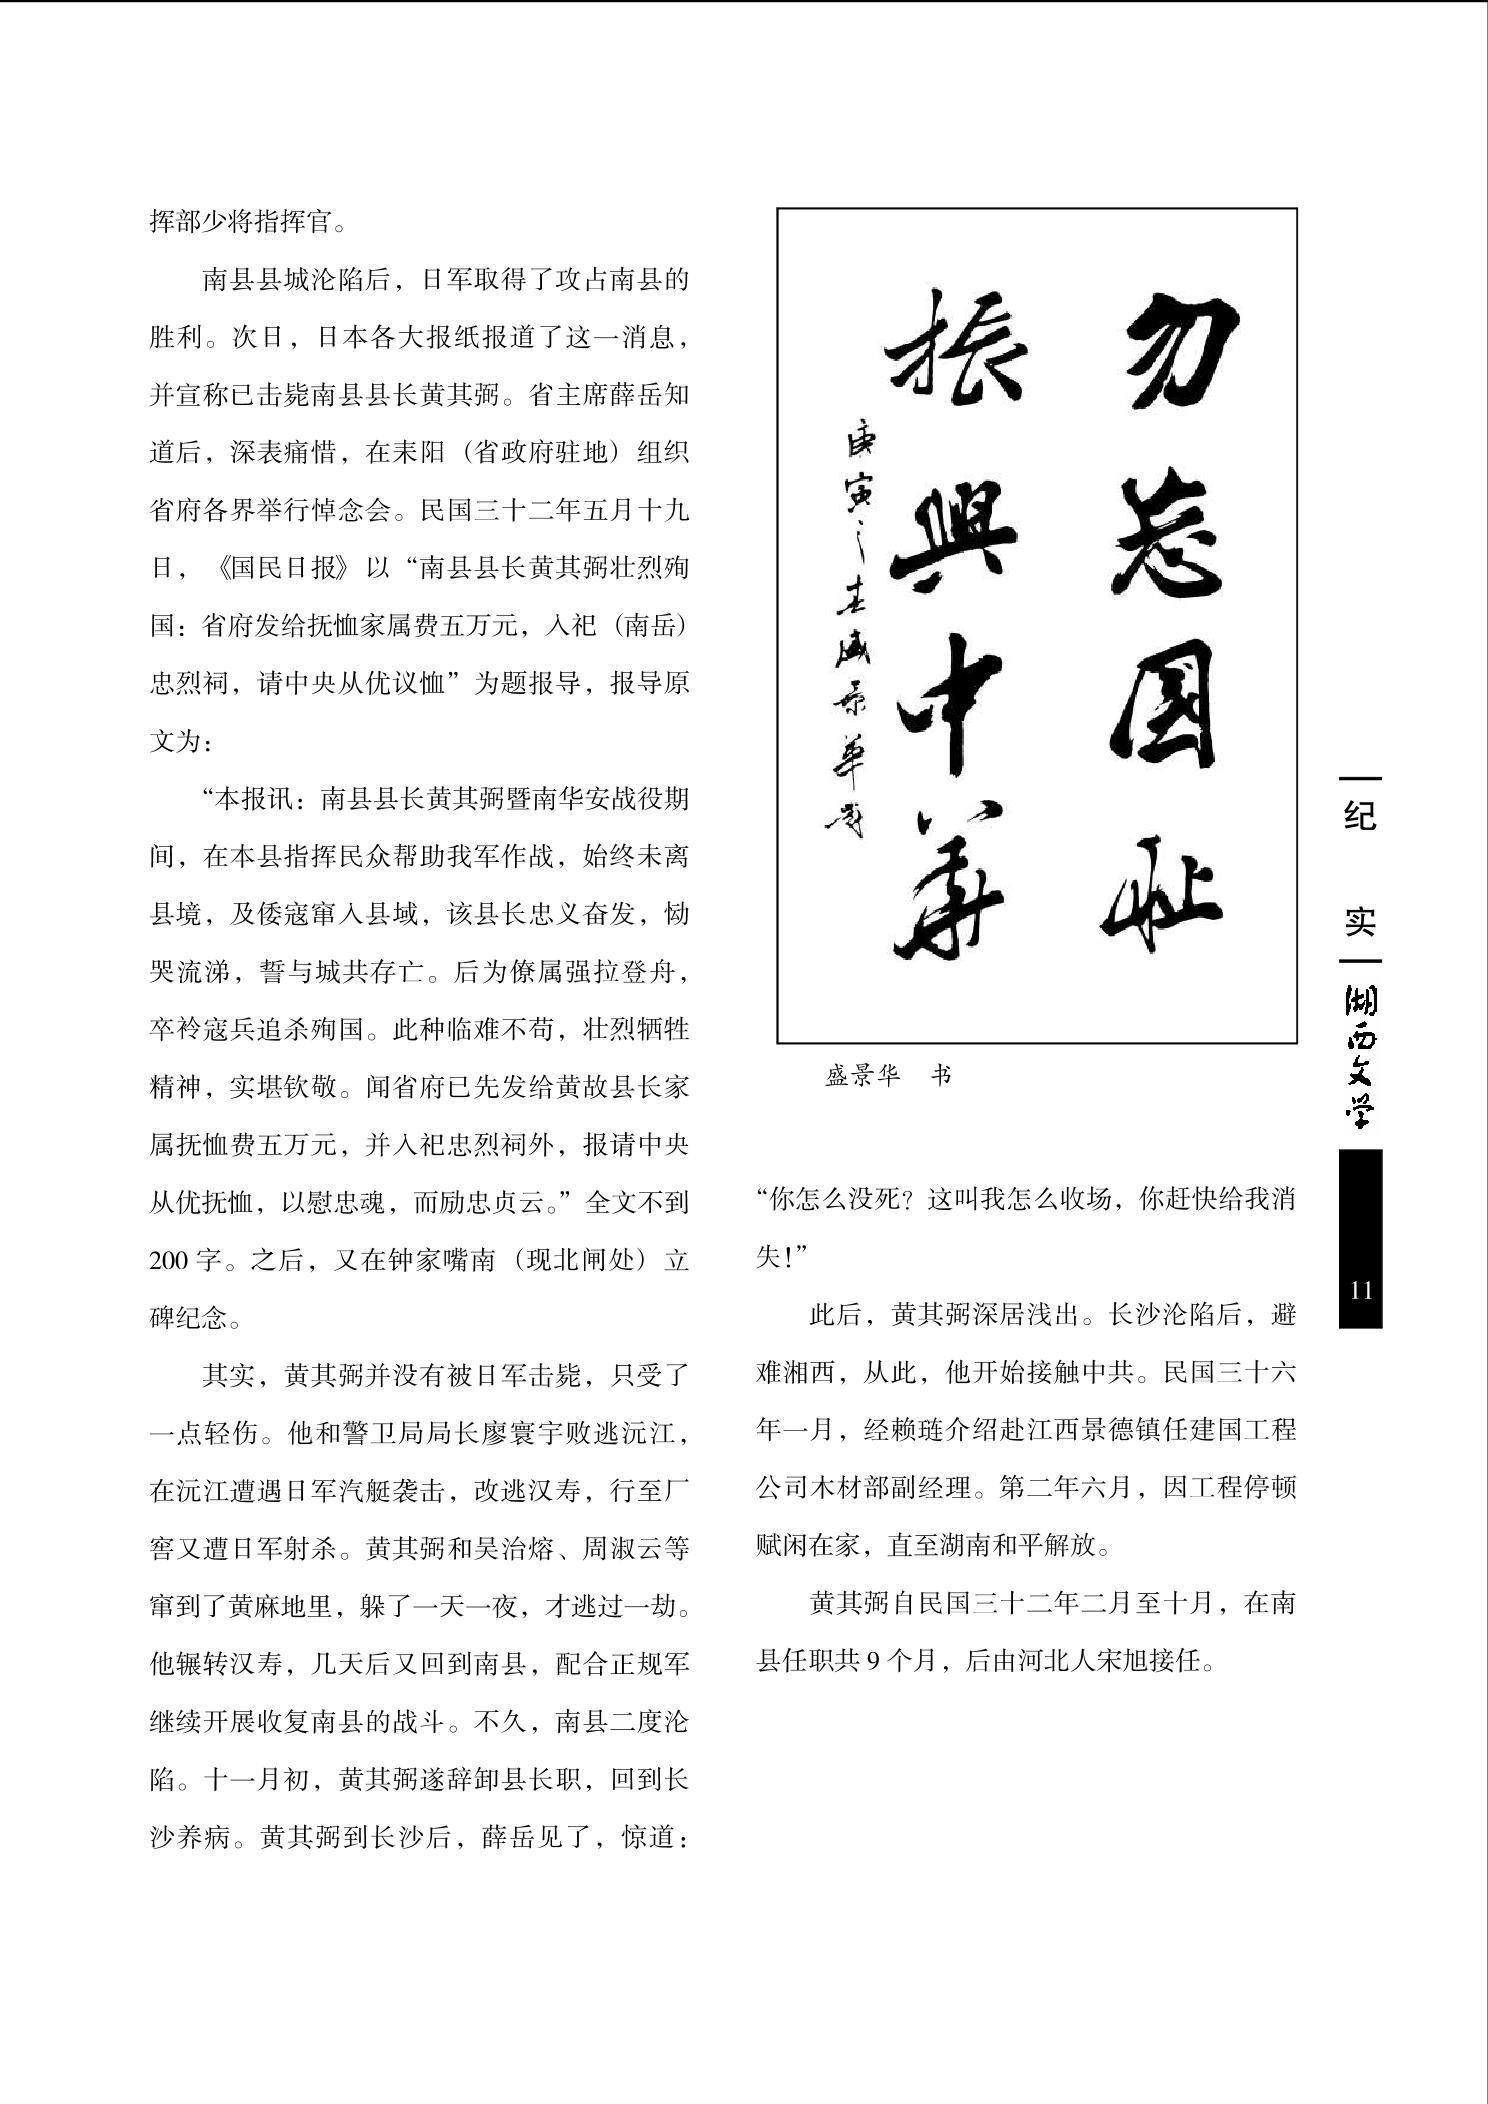 挥部少将指挥官。
南县县城沦陷后，日军取得了攻占南县的
胜利。次日，日本各大报纸报道了这一消息，
并宣称已击毙南县县长黄其弼。省主席薛岳知
道后，深表痛惜，在耒阳（省政府驻地）组织
省府各界举行悼念会。民国三十二年五月十九
日，《国民日报》以“南县县长黄其弼壮烈殉
国：省府发给抚恤家属费五万元，入祀（南岳）
忠烈祠，请中央从优议恤”为题报导，报导原
文为：
“本报讯：南县县长黄其弼暨南华安战役期
间，在本县指挥民众帮助我军作战，始终未离
县境，及倭寇窜入县域，该县长忠义奋发，恸
哭流涕，誓与城共存亡。后为僚属强拉登舟，
卒衿寇兵追杀殉国。此种临难不苟，壮烈牺牲
精神，实堪钦敬。闻省府已先发给黄故县长家
属抚恤费五万元，并入祀忠烈祠外，报请中央
从优抚恤，以慰忠魂，而励忠贞云。”全文不到
200 字。之后，又在钟家嘴南（现北闸处）立
碑纪念。
其实，黄其弼并没有被日军击毙，只受了
一点轻伤。他和警卫局局长廖寰宇败逃沅江，
在沅江遭遇日军汽艇袭击，改逃汉寿，行至厂
窖又遭日军射杀。黄其弼和吴治熔、周淑云等
窜到了黄麻地里，躲了一天一夜，才逃过一劫。
他辗转汉寿，几天后又回到南县，配合正规军
继续开展收复南县的战斗。不久，南县二度沦
陷。十一月初，黄其弼遂辞卸县长职，回到长
沙养病。黄其弼到长沙后，薛岳见了，惊道：
勿忘国耻
振興中華
庚寅之春盛景華書
盛景华 书
“你怎么没死？这叫我怎么收场，你赶快给我消
失！”
此后，黄其弼深居浅出。长沙沦陷后，避
难湘西，从此，他开始接触中共。民国三十六
年一月，经赖琏介绍赴江西景德镇任建国工程
公司木材部副经理。第二年六月，因工程停顿
赋闲在家，直至湖南和平解放。
黄其弼自民国三十二年二月至十月，在南
县任职共 9 个月，后由河北人宋旭接任。
纪 实
湖西文学
11